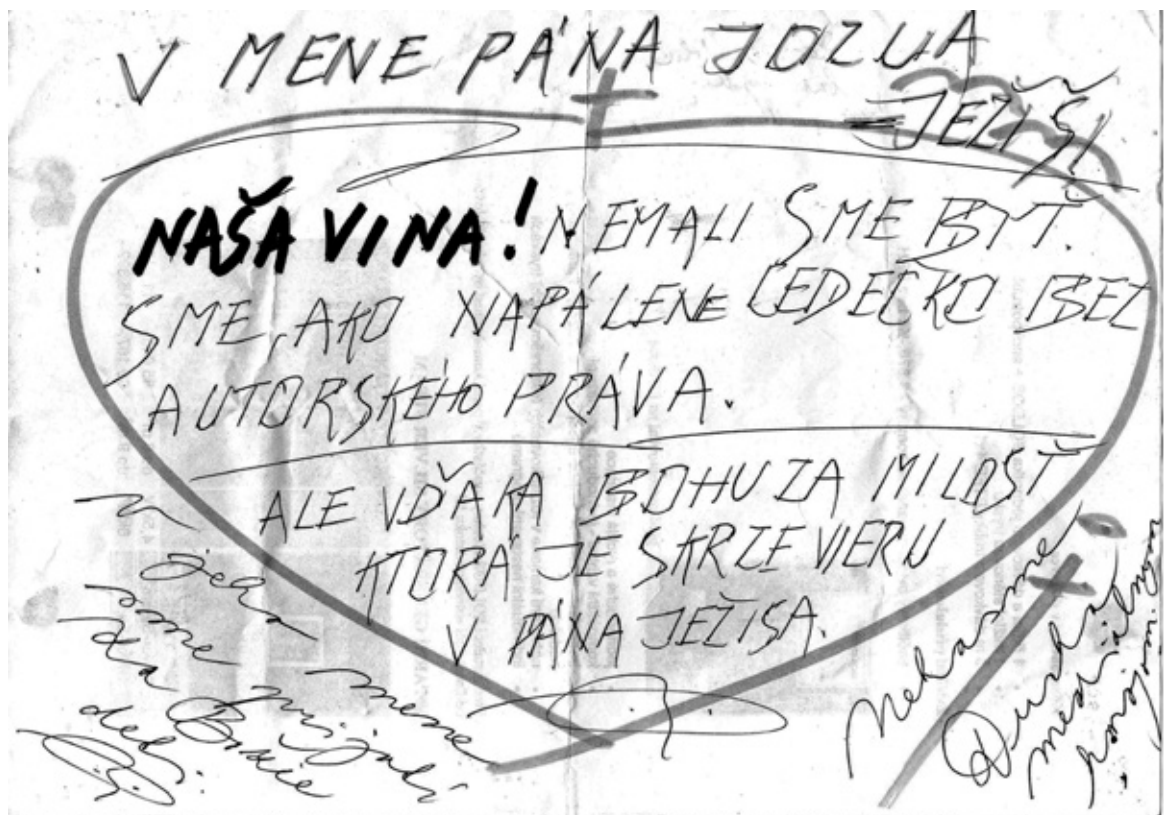 V MENE PÁNA JOZUA
JEŽIŠI
NAŠA VINA! NEMALI SME BYŤ.
SME, AKO NAPÁLENE CEDEČKO BEZ
AUTORSKÉHO PRÁVA.
ALE VĎAKA BOHU ZA MILOSŤ
KTORÁ JE SKRZE VIERU
V PÁNA JEŽISA.
sme
mene
prijali
za Božie
Nehasme
Ducha